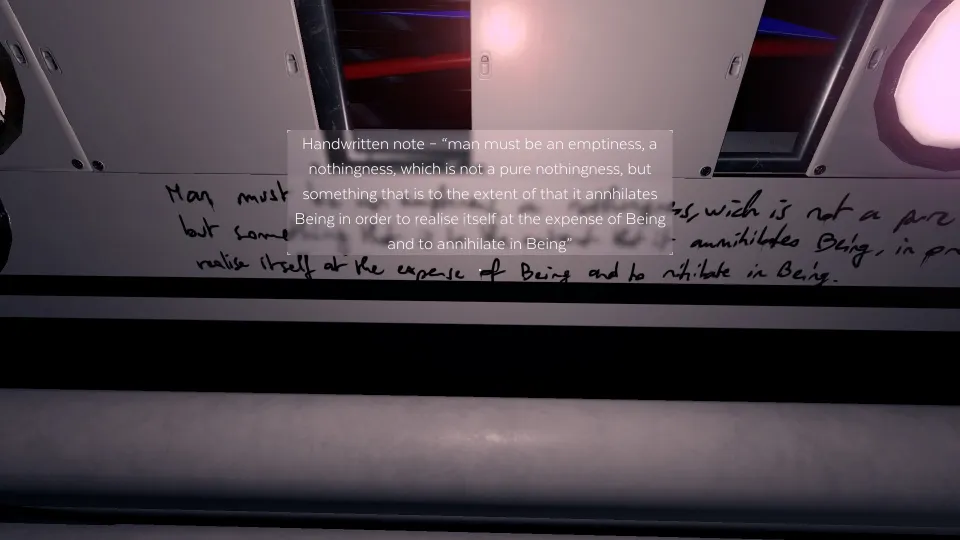 Handwritten note – “man must be an emptiness, a
nothingness, which is not a pure nothingness, but
something that is to the extent of that it annhilates
Being in order to realise itself at the expense of Being
and to annihilate in Being”
Man must
wich is not a pure
but some annihilates Being, in
realise itself at the expense of Being and to nihilate in Being.